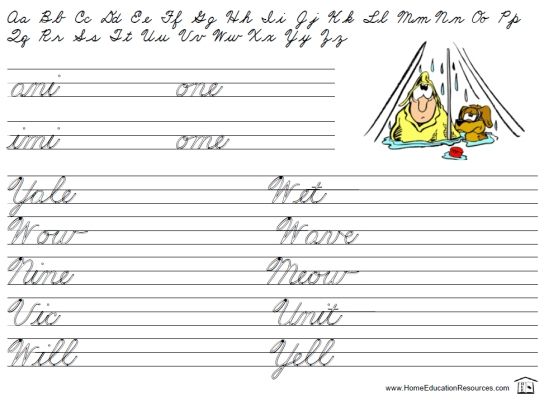 Aa Bb Cc Dd Ee Ff Gg Hh Ii Jj Kk Ll Mm Nn Oo Pp
Qq Rr Ss Tt Uu Vv Ww Xx Yy Zz
ani one
imi ome
Yale Wet
Wow Wave
Nine Meow
Vic Unit
Will Yell
www.HomeEducationResources.com